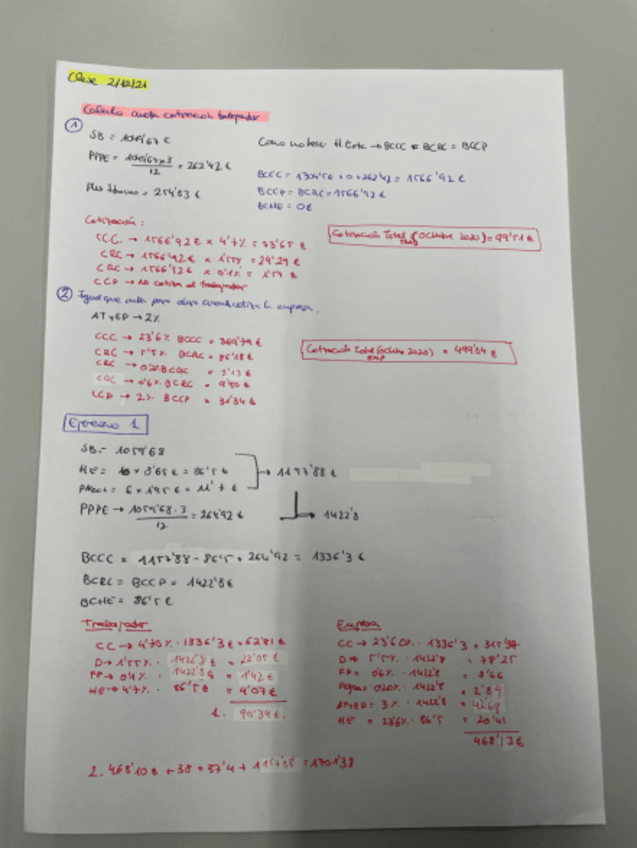 Clase 2/12/21
Calculo cuota cotización trabajador
①
SB = 1049'67 €
PPPE = 1049'67 x 3 / 12 = 262'42 €
Plus = 254'83 €
Como no hace H.Extra → BCCC = BCRC = BCCP
BCCC = 1304'5 + 0 + 262'42 = 1566'92 €
BCCP = BCRC = 1566'92 €
BCHE = 0 €
Cotización:
CCC → 1566'92 € x 4'7% = 73'65 €
CRC → 1566'92 € x 1'55% = 24'29 €
CRC → 1566'92 € x 0'1% = 1'57 €
CCP → No cotiza el trabajador
Cotización Total (Octubre 2020) = 99'51 €
② Igual que antes pero ahora cotiza la empresa.
AT y EP → 2%
CCC → 23'6% BCCC = 369'79 €
CRC → 5'5% BCRC = 86'18 €
CRC → 0'2% BCRC = 3'13 €
CRC → 0'6% BCRC = 9'40 €
CCP → 2% BCCP = 31'34 €
Cotización Total (Octubre 2020) = 499'84 €
Ejercicio 1
SB = 1059'68
HE = 10 x 8'65 € = 86'5 €
= 6 x 1'95 € = 11'7 €
→ 1157'88 €
PPPE → 1059'68 · 3 / 12 = 264'92 €
→ 1422'8
BCCC = 1157'88 - 86'5 + 264'92 = 1336'3 €
BCRC = BCCP = 1422'8 €
BCHE = 86'5 €
Trabajador
CC → 4'70% · 1336'3 € = 62'81 €
D → 1'55% · 1422'8 € = 22'05 €
FP → 0'1% · 1422'8 € = 1'42 €
HE → 4'7% · 86'5 € = 4'07 €
1. 90'34 €.
Empresa
CC → 23'60% · 1336'3 = 315'37
D → 5'5% · 1422'8 = 78'25
FP = 0'6% · 1422'8 =
Fogasa = 0'20% · 1422'8 = 2'84
= 3% · 1422'8 = 42'68
HE = 23'6% · 86'5 = 20'41
468'13 €
2. 468'10 € + 38 + 37'4 + 1157'88 = 1701'38